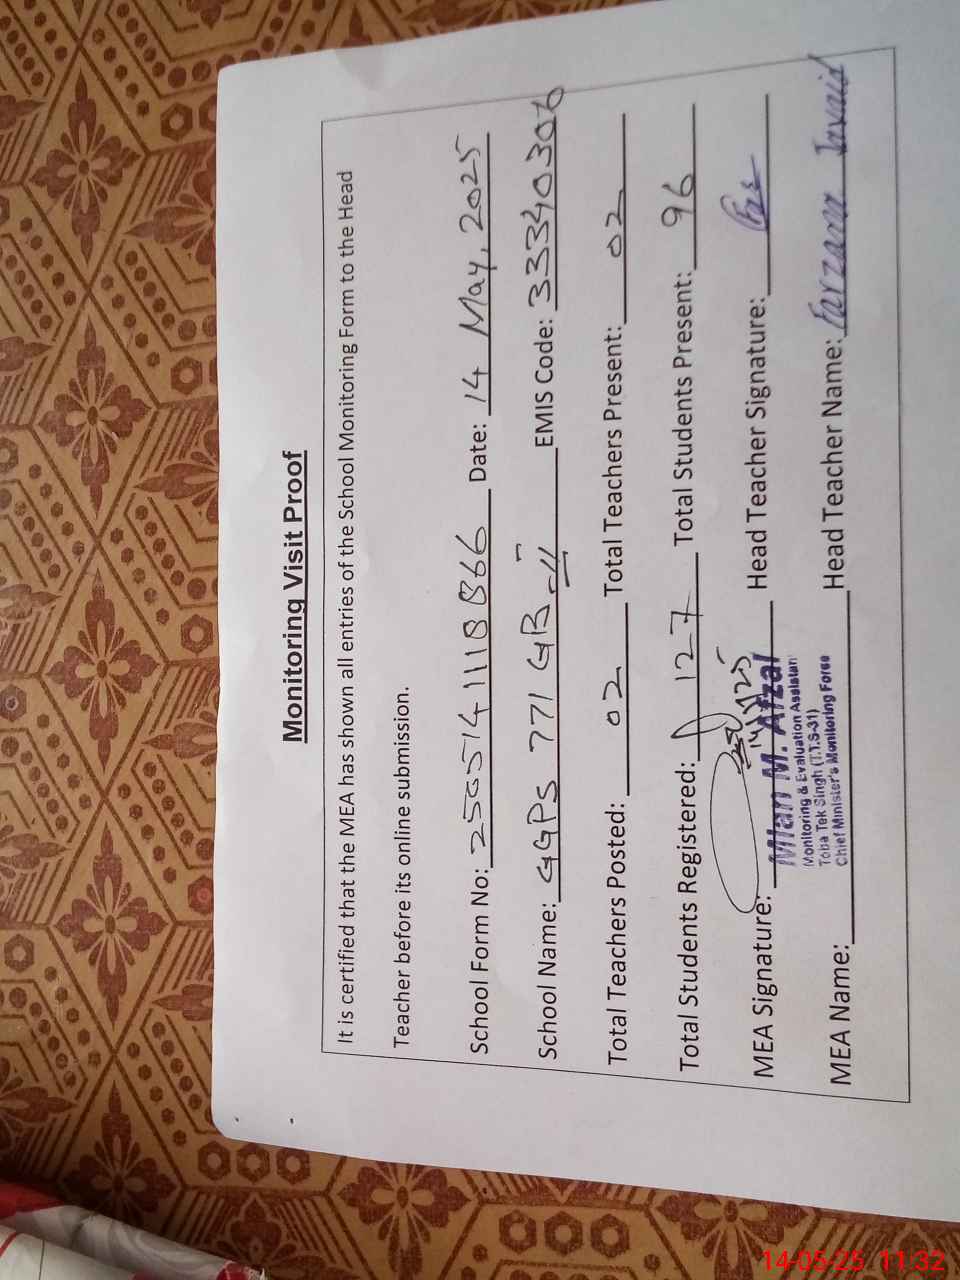 Monitoring Visit Proof
It is certified that the MEA has shown all entries of the School Monitoring Form to the Head
Teacher before its online submission.
School Form No: 250514111B866 Date: 14 May, 2025
School Name: GGPS 771 GB-II EMIS Code: 33340306
Total Teachers Posted: 02 Total Teachers Present: 02
Total Students Registered: 127 Total Students Present: 96
MEA Signature: Head Teacher Signature:
Mian M. Afzal
Monitoring & Evaluation Assistant
Toba Tek Singh (T.T.S-31)
Chief Minister's Monitoring Force
MEA Name: Head Teacher Name: Farzana Javaid
14-05-25 11:32